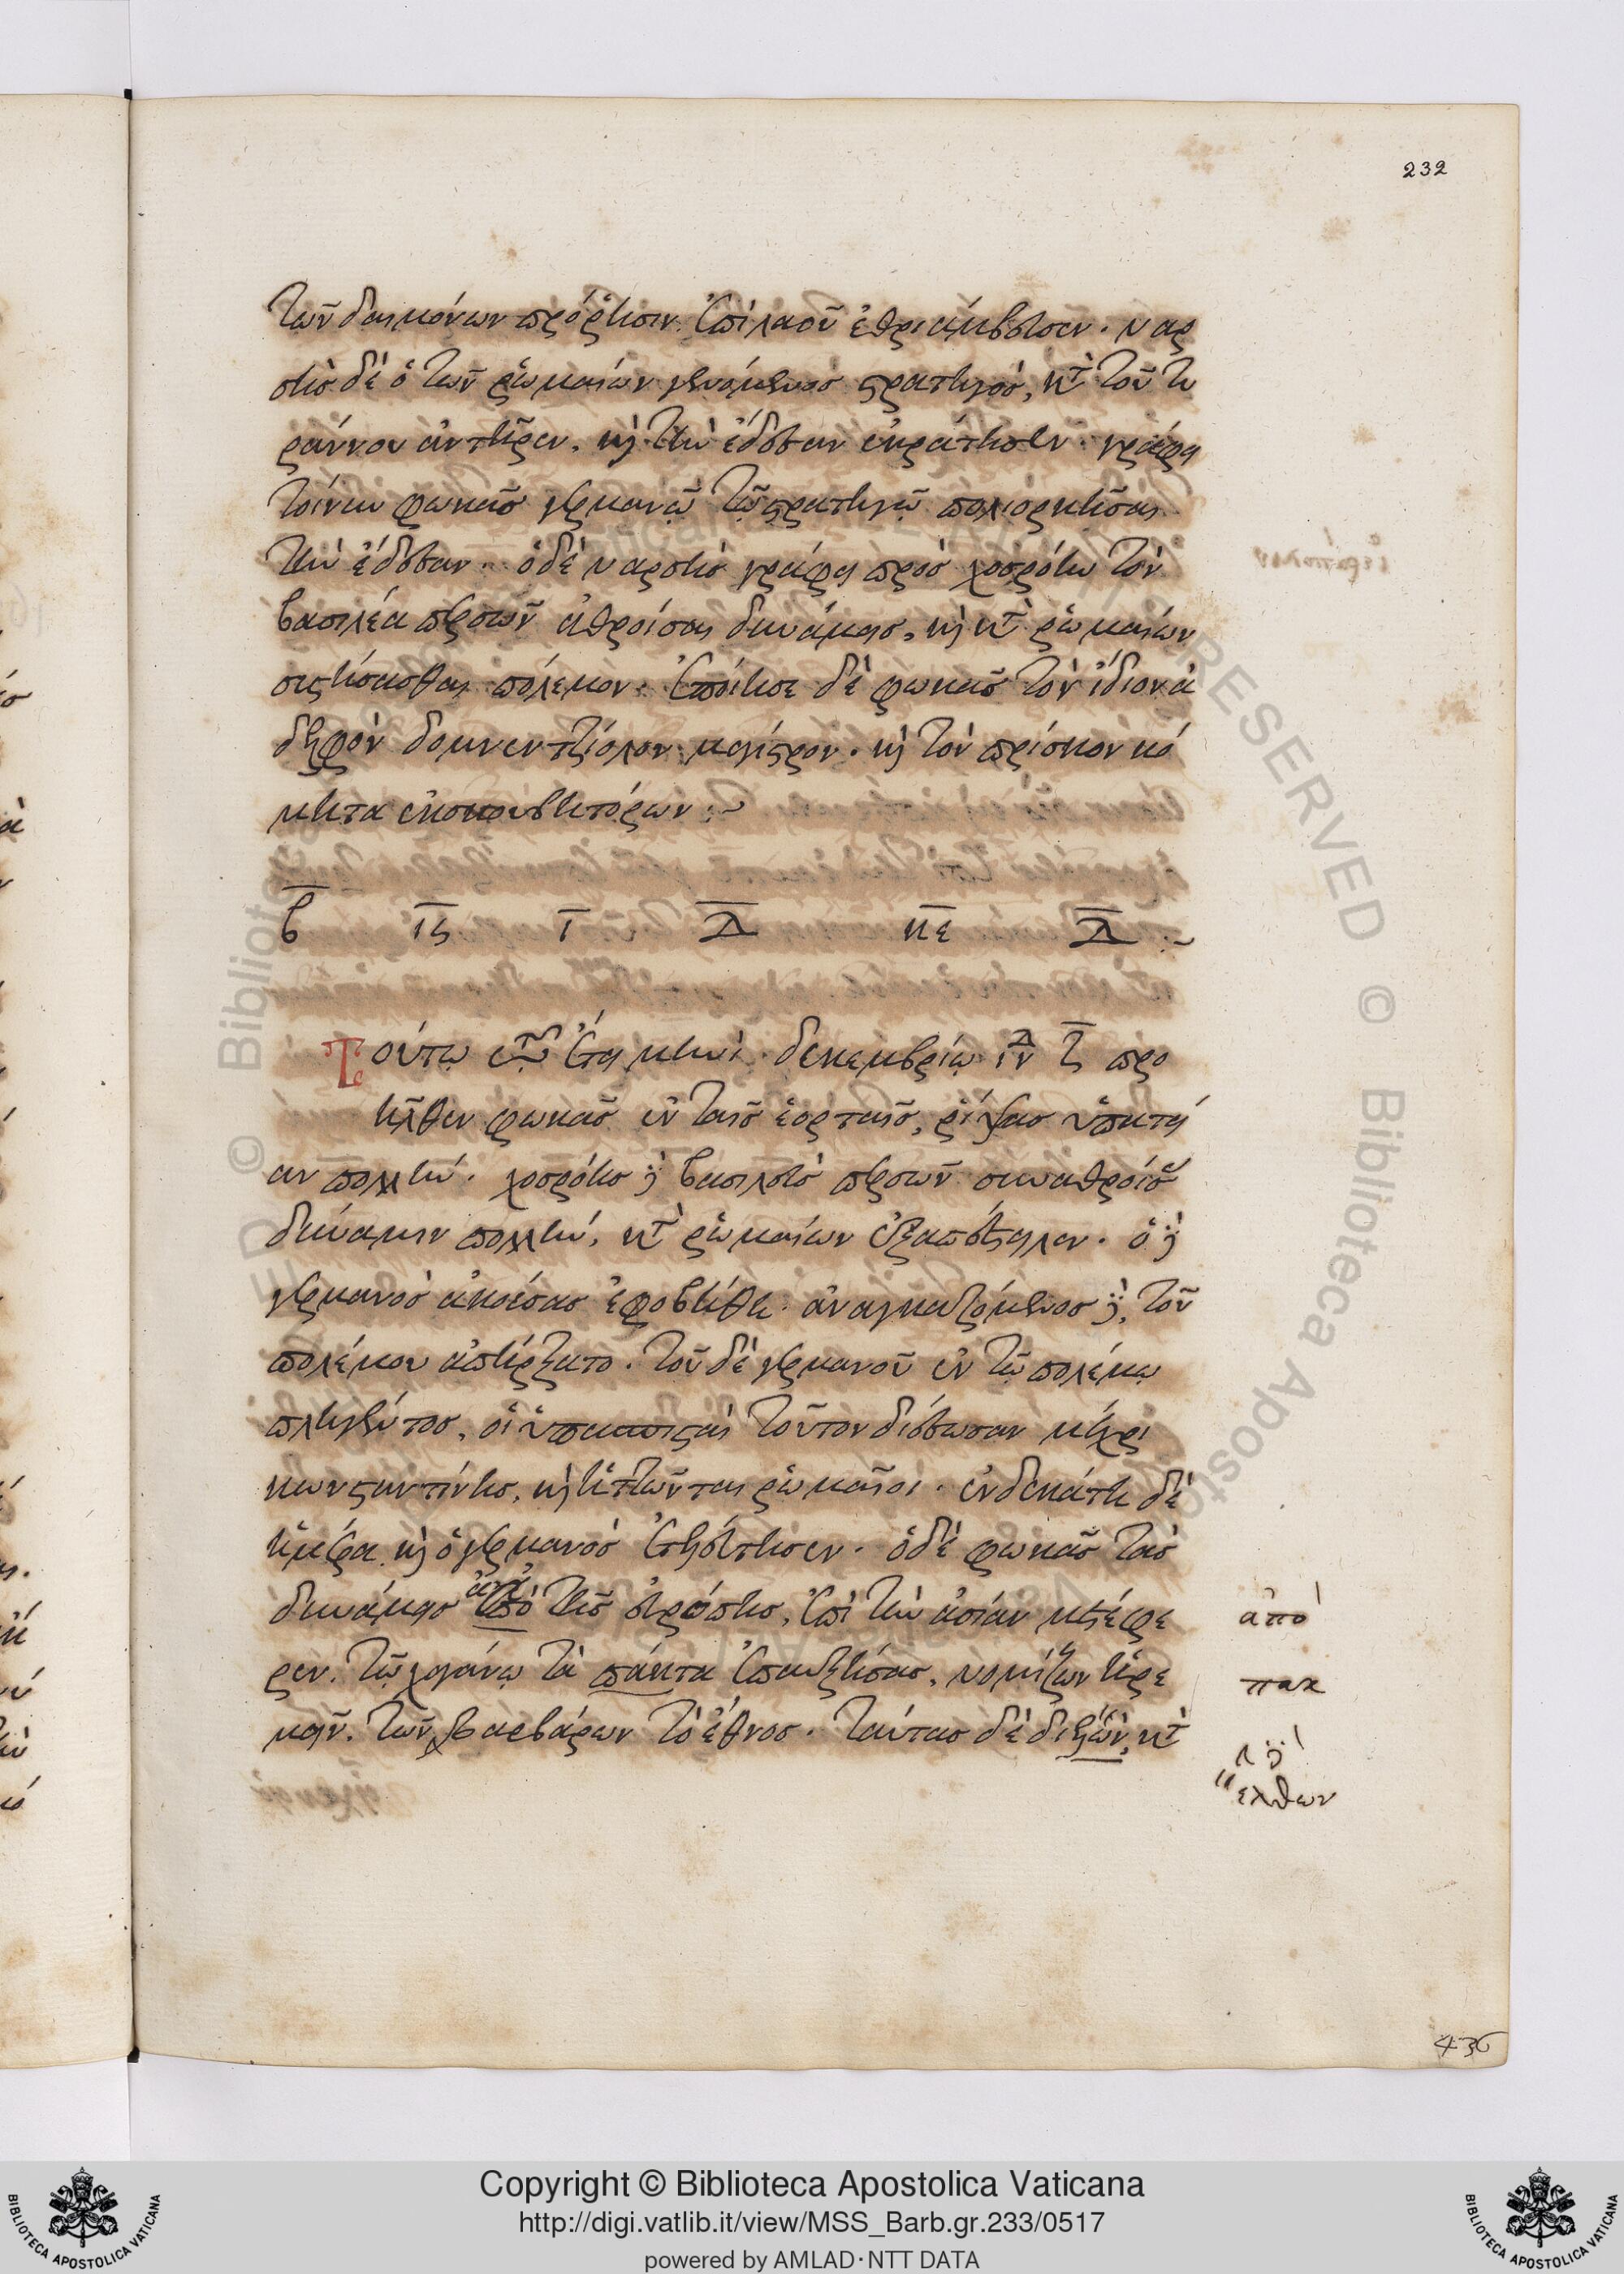 232
τῶν δαιμόνων πρόρρησιν ἐπὶ λαοῦ ἐθριάμβευσεν. ναρ
σῆς δὲ ὁ τῶν ῥωμαίων γενόμενος στρατηγός, κατὰ τοῦ τυ
ράννου ἀντῆρεν, καὶ τὴν ἔδεσαν ἐκράτησεν. γράφει
τοίνυν φωκᾶς γερμανῷ τῷ στρατηγῷ πολιορκῆσαι
τὴν ἔδεσαν. ὁ δὲ ναρσῆς γράφει πρὸς χοσρόην τὸν
βασιλέα περσῶν ἀθροίσαι δυνάμεις, καὶ κατὰ ῥωμαίων
συστήσασθαι πόλεμον. ἐποίησε δὲ φωκᾶς τὸν ἴδιον ἀ
δελφὸν δομνεντζίολον μαγίστρον. καὶ τὸν πρίσκον κό
μητα ἐκσκουβητόρων :~
β ις γ λ κε λ :~
Τούτῳ τῷ ἔτει μηνὶ δεκεμβρίῳ ἰνδ ζ προ
ῆλθεν φωκᾶς ἐν ταῖς ἑορταῖς, ῥίψας ὑπατεί
αν πολλήν. χοσρόης δὲ βασιλεὺς περσῶν συναθροίσας
δύναμιν πολλήν, κατὰ ῥωμαίων ἐξαπέστειλεν. ὁ δὲ
γερμανὸς ἀκούσας ἐφοβήθη. ἀναγκαζόμενος δὲ, τοῦ
πολέμου ἀπήρξατο. τοῦ δὲ γερμανοῦ ἐν τῷ πολέμῳ
πληγέντος, οἱ ὑπασπισταὶ τοῦτον διέσωσαν μέχρι
κωνσταντίνης, καὶ ἡττῶνται ῥωμαῖοι. ἑνδεκάτη δὲ
ἡμέρα καὶ ὁ γερμανὸς ἐτελεύτησεν. ὁ δὲ φωκᾶς τὰς
δυνάμεις ἀπὸ τῆς εὐρώπης, ἐπὶ τὴν ἀσίαν μετέφε
ρεν. τῷ χαγάνῳ τὰ πάκτα ἐπαυξήσας, νομίζων ἠρε
μεῖν. τῶν βαρβάρων τὸ ἔθνος. ταύτας δὲ διελών, κατὰ
ἀπὸ
πακ
λ δὲ
ελθων
436
Copyright © Biblioteca Apostolica Vaticana
http://digi.vatlib.it/view/MSS_Barb.gr.233/0517
powered by AMLAD·NTT DATA
BIBLIOTECA APOSTOLICA VATICANA
BIBLIOTECA APOSTOLICA VATICANA